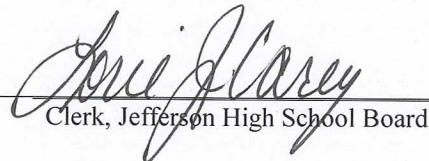 Lorie J Carey
Clerk, Jefferson High School Board